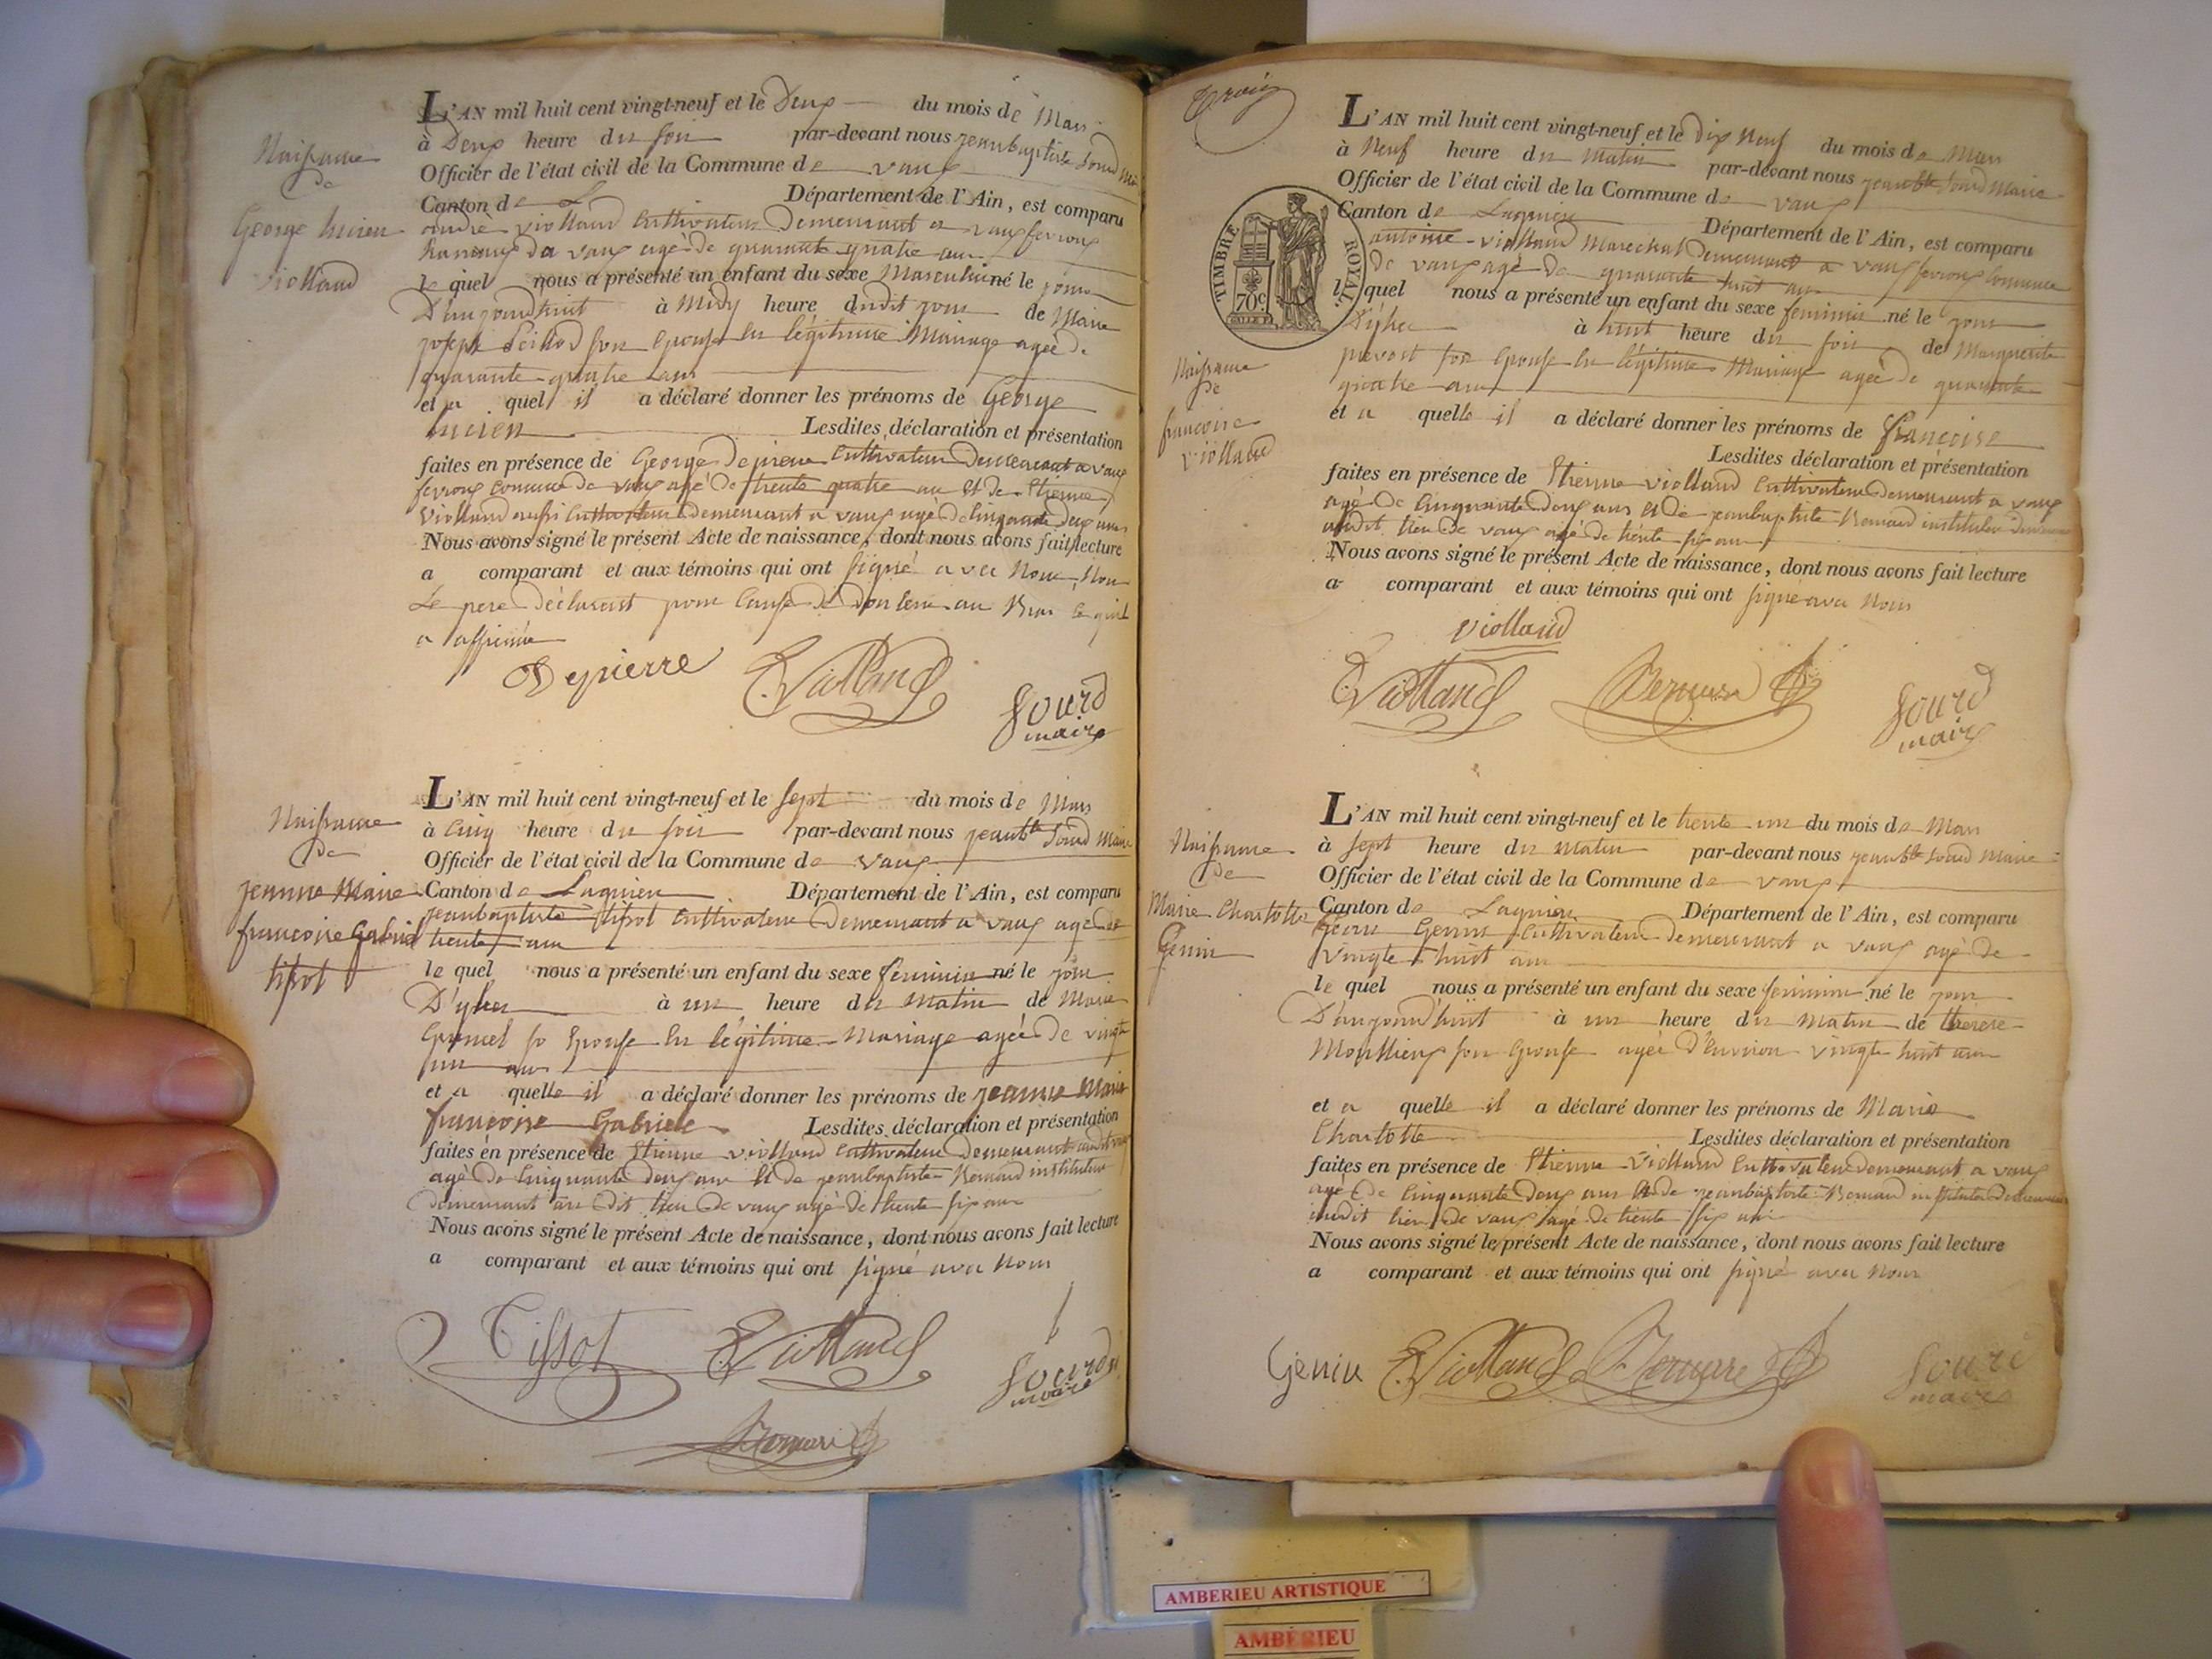 Naissance
de
George lucien
violland
L'AN mil huit cent vingt-neuf et le Deux du mois de Mars
à Deux heure du soir par-devant nous jeanbaptiste Sourd
Officier de l'état civil de la Commune de vaux
Canton de L Département de l'Ain, est comparu
andré violland Cultivateur demeurant a vaux fevroux
hameau de vaux agé de quarante quatre ans
le quel nous a présenté un enfant du sexe Masculin né le jour
D'aujourd'huit à Midy heure dudit jour de Marie
joseph son Epouse en légitime Mariage agée de
quarante quatre ans
et a quel il a déclaré donner les prénoms de George
lucien Lesdites déclaration et présentation
faites en présence de George Depierre Cultivateur demeurant a vaux
fevroux commune de vaux agé de trente quatre ans et de Etienne
Violland aussi Cultivateur demeurant a vaux agé de Cinquante deux ans
Nous avons signé le présent Acte de naissance, dont nous avons fait lecture
a comparant et aux témoins qui ont signé avec Nous, Non
Le pere déclarant pour Cause de douleur au Bras ce qu'il
a affirmé
Depierre E. Violland Sourd
maire
Naissance
de
jeanne Marie
francoise Gabriel
tissot
L'AN mil huit cent vingt-neuf et le sept du mois de Mars
à Cinq heure du soir par-devant nous jeanbte Sourd Maire
Officier de l'état civil de la Commune de vaux
Canton de Lagnieu Département de l'Ain, est comparu
jeanbaptiste tissot Cultivateur demeurant a vaux agé de
trente ans
le quel nous a présenté un enfant du sexe feminin né le jour
D'yher à un heure du Matin de Marie
so Epouse en légitime Mariage agée de vingt
ans
et a quelle il a déclaré donner les prénoms de jeanne Marie
francoise Gabriele Lesdites déclaration et présentation
faites en présence de Etienne violland Cultivateur demeurant audit vaux
agé de Cinquante deux ans et de jeanbaptiste Bernard instituteur
demeurant au dit lieu de vaux agé de trente six ans
Nous avons signé le présent Acte de naissance, dont nous avons fait lecture
a comparant et aux témoins qui ont signé avec Nous
Tissot E. Violland Sourd
maire
Bernard
Trois
TIMBRE ROYAL
70c.
Naissance
de
francoise
violland
L'AN mil huit cent vingt-neuf et le dix Neuf du mois de Mars
à Neuf heure du Matin par-devant nous jeanbte Sourd Maire
Officier de l'état civil de la Commune de vaux
Canton de Lagnieu Département de l'Ain, est comparu
antoine violland Marechal demeurant a vaux fevroux Commune
de vaux agé de quarante huit ans
le quel nous a présenté un enfant du sexe feminin né le jour
D'yher à huit heure du soir de Marguerite
prevost son Epouse en légitime Mariage agée de quarante
quatre ans
et a quelle il a déclaré donner les prénoms de francoise
Lesdites déclaration et présentation
faites en présence de Etienne violland Cultivateur demeurant a vaux
agé de Cinquante deux ans et de jeanbaptiste Bernard instituteur demeurant
audit lieu de vaux agé de trente six ans
Nous avons signé le présent Acte de naissance, dont nous avons fait lecture
a comparant et aux témoins qui ont signé avec Nous
violland
E. Violland Bernard Sourd
maire
Naissance
de
Marie Charlotte
Genin
L'AN mil huit cent vingt-neuf et le trente un du mois de Mars
à sept heure du Matin par-devant nous jeanbte Sourd Maire
Officier de l'état civil de la Commune de vaux
Canton de Lagnieu Département de l'Ain, est comparu
Genin Cultivateur demeurant a vaux agé de
vingte huit ans
le quel nous a présenté un enfant du sexe feminin né le jour
D'aujourd'huit à un heure du Matin de therese
Moullieux son Epouse agée d'Environ vingte huit ans
et a quelle il a déclaré donner les prénoms de Marie
Charlotte Lesdites déclaration et présentation
faites en présence de Etienne Violland Cultivateur demeurant a vaux
agé de Cinquante deux ans et de jeanbaptiste Bernard instituteur demeurant
audit lieu de vaux agé de trente six ans
Nous avons signé le présent Acte de naissance, dont nous avons fait lecture
a comparant et aux témoins qui ont signé avec Nous
Genin E. Violland Bernard Sourd
maire
AMBERIEU ARTISTIQUE
AMBERIEU